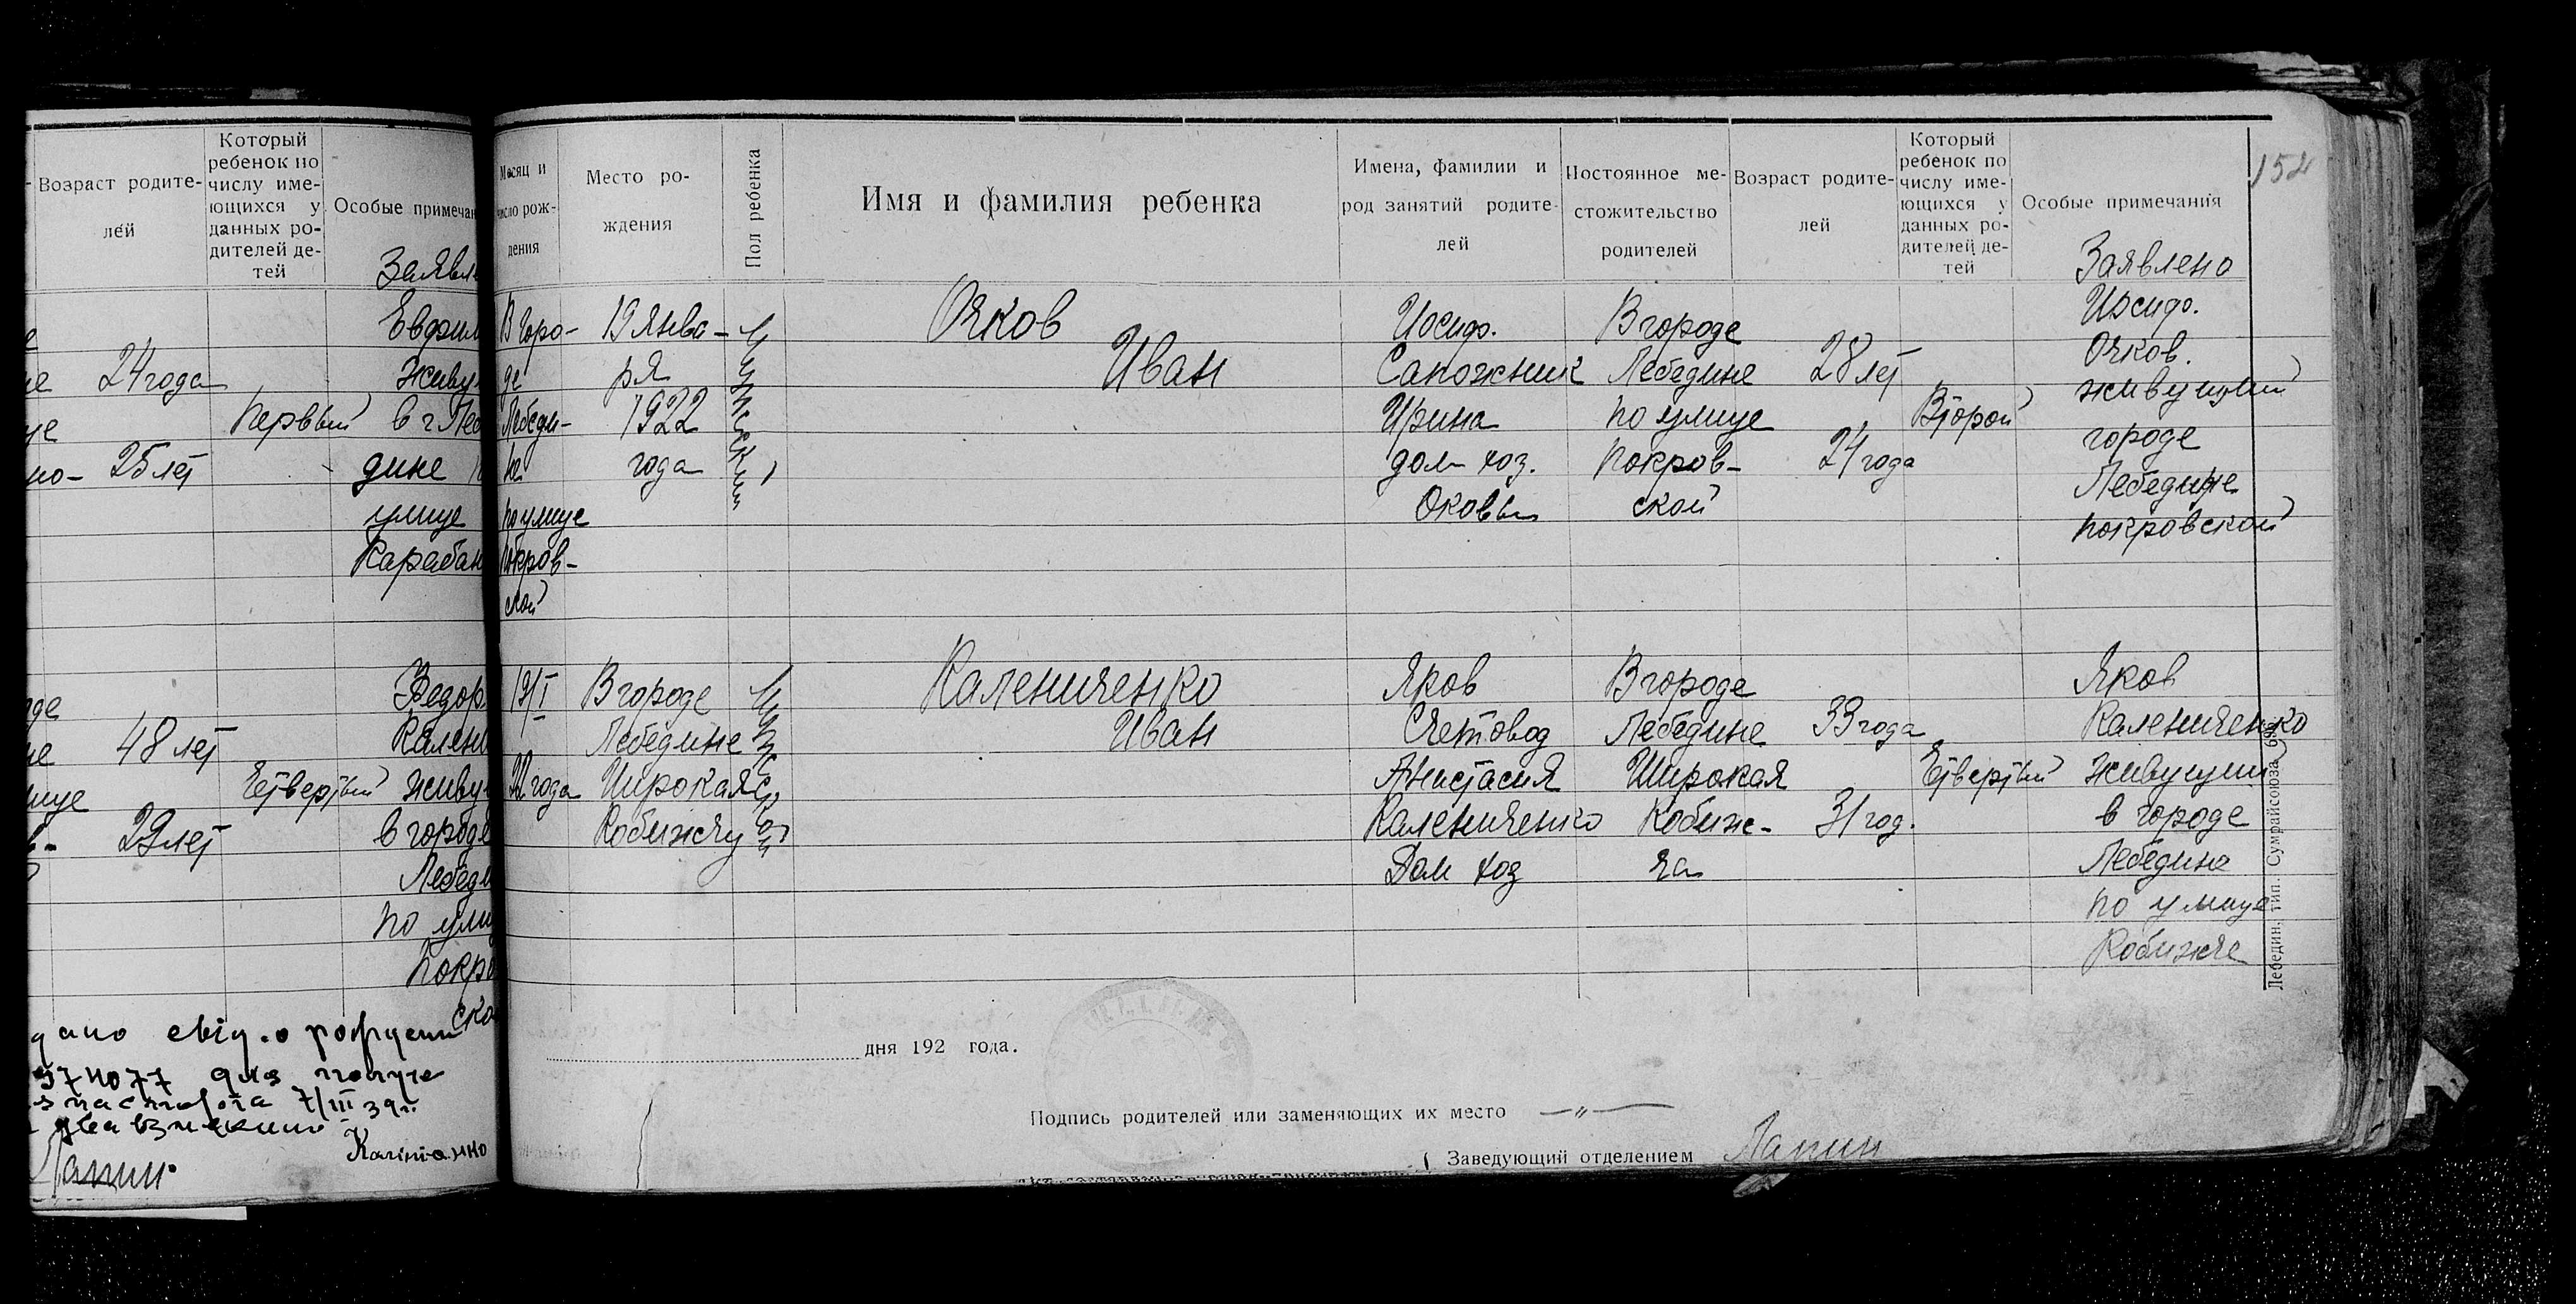 Возраст родите-
лей
Который
ребенок по
числу име-
ющихся у
данных ро-
дителей де-
тей
Особые примечан
Заявле
24 года
25 лет
Первый
Евфим
живу
в г Лебе
дине
улице
Карабан
48 лет
29 лет
Етвертый
Федор
Калени
живу
в городе
Лебеди
по ули
Покро
ско
дано свід. о рождении
974077 для получе
паспорта 7/III 39 г.
Лапин
Месяц и
число рож-
дения
Место ро-
ждения
Пол ребенка
Имя и фамилия ребенка
Имена, фамилии и
род занятий родите-
лей
Постоянное ме-
стожительство
родителей
Возраст родите-
лей
Который
ребенок по
числу име-
ющихся у
данных ро-
дителей де-
тей
Особые примечания
152
Заявлено
В горо-
де
Лебеди-
не
по улице
Покров-
ской
19 янва-
ря
1922
года
Мужской
Очков
Иван
Иосиф.
Сапожник
Ирина
дом хоз.
Оковы
В городе
Лебедине
по улице
Покров-
ской
28 лет
24 года
Второй
Иосиф.
Очков.
живущий
городе
Лебедине
Покровской
19/I
22 года
В городе
Лебедине
Широкая
Кобижчу
Мужской
Калениченко
Иван
Яков
Счетовод
Анастасия
Калениченко
Дом хоз
В городе
Лебедине
Широкая
Кобиж-
ча
33 года
31 год.
Етвертый
Яков
Калениченко
живущий
в городе
Лебедине
по улице
Кобижче
Лебедин, тип. Сумрайсоюза
дня 192 года.
Подпись родителей или заменяющих их место —"—
Заведующий отделением Лапин